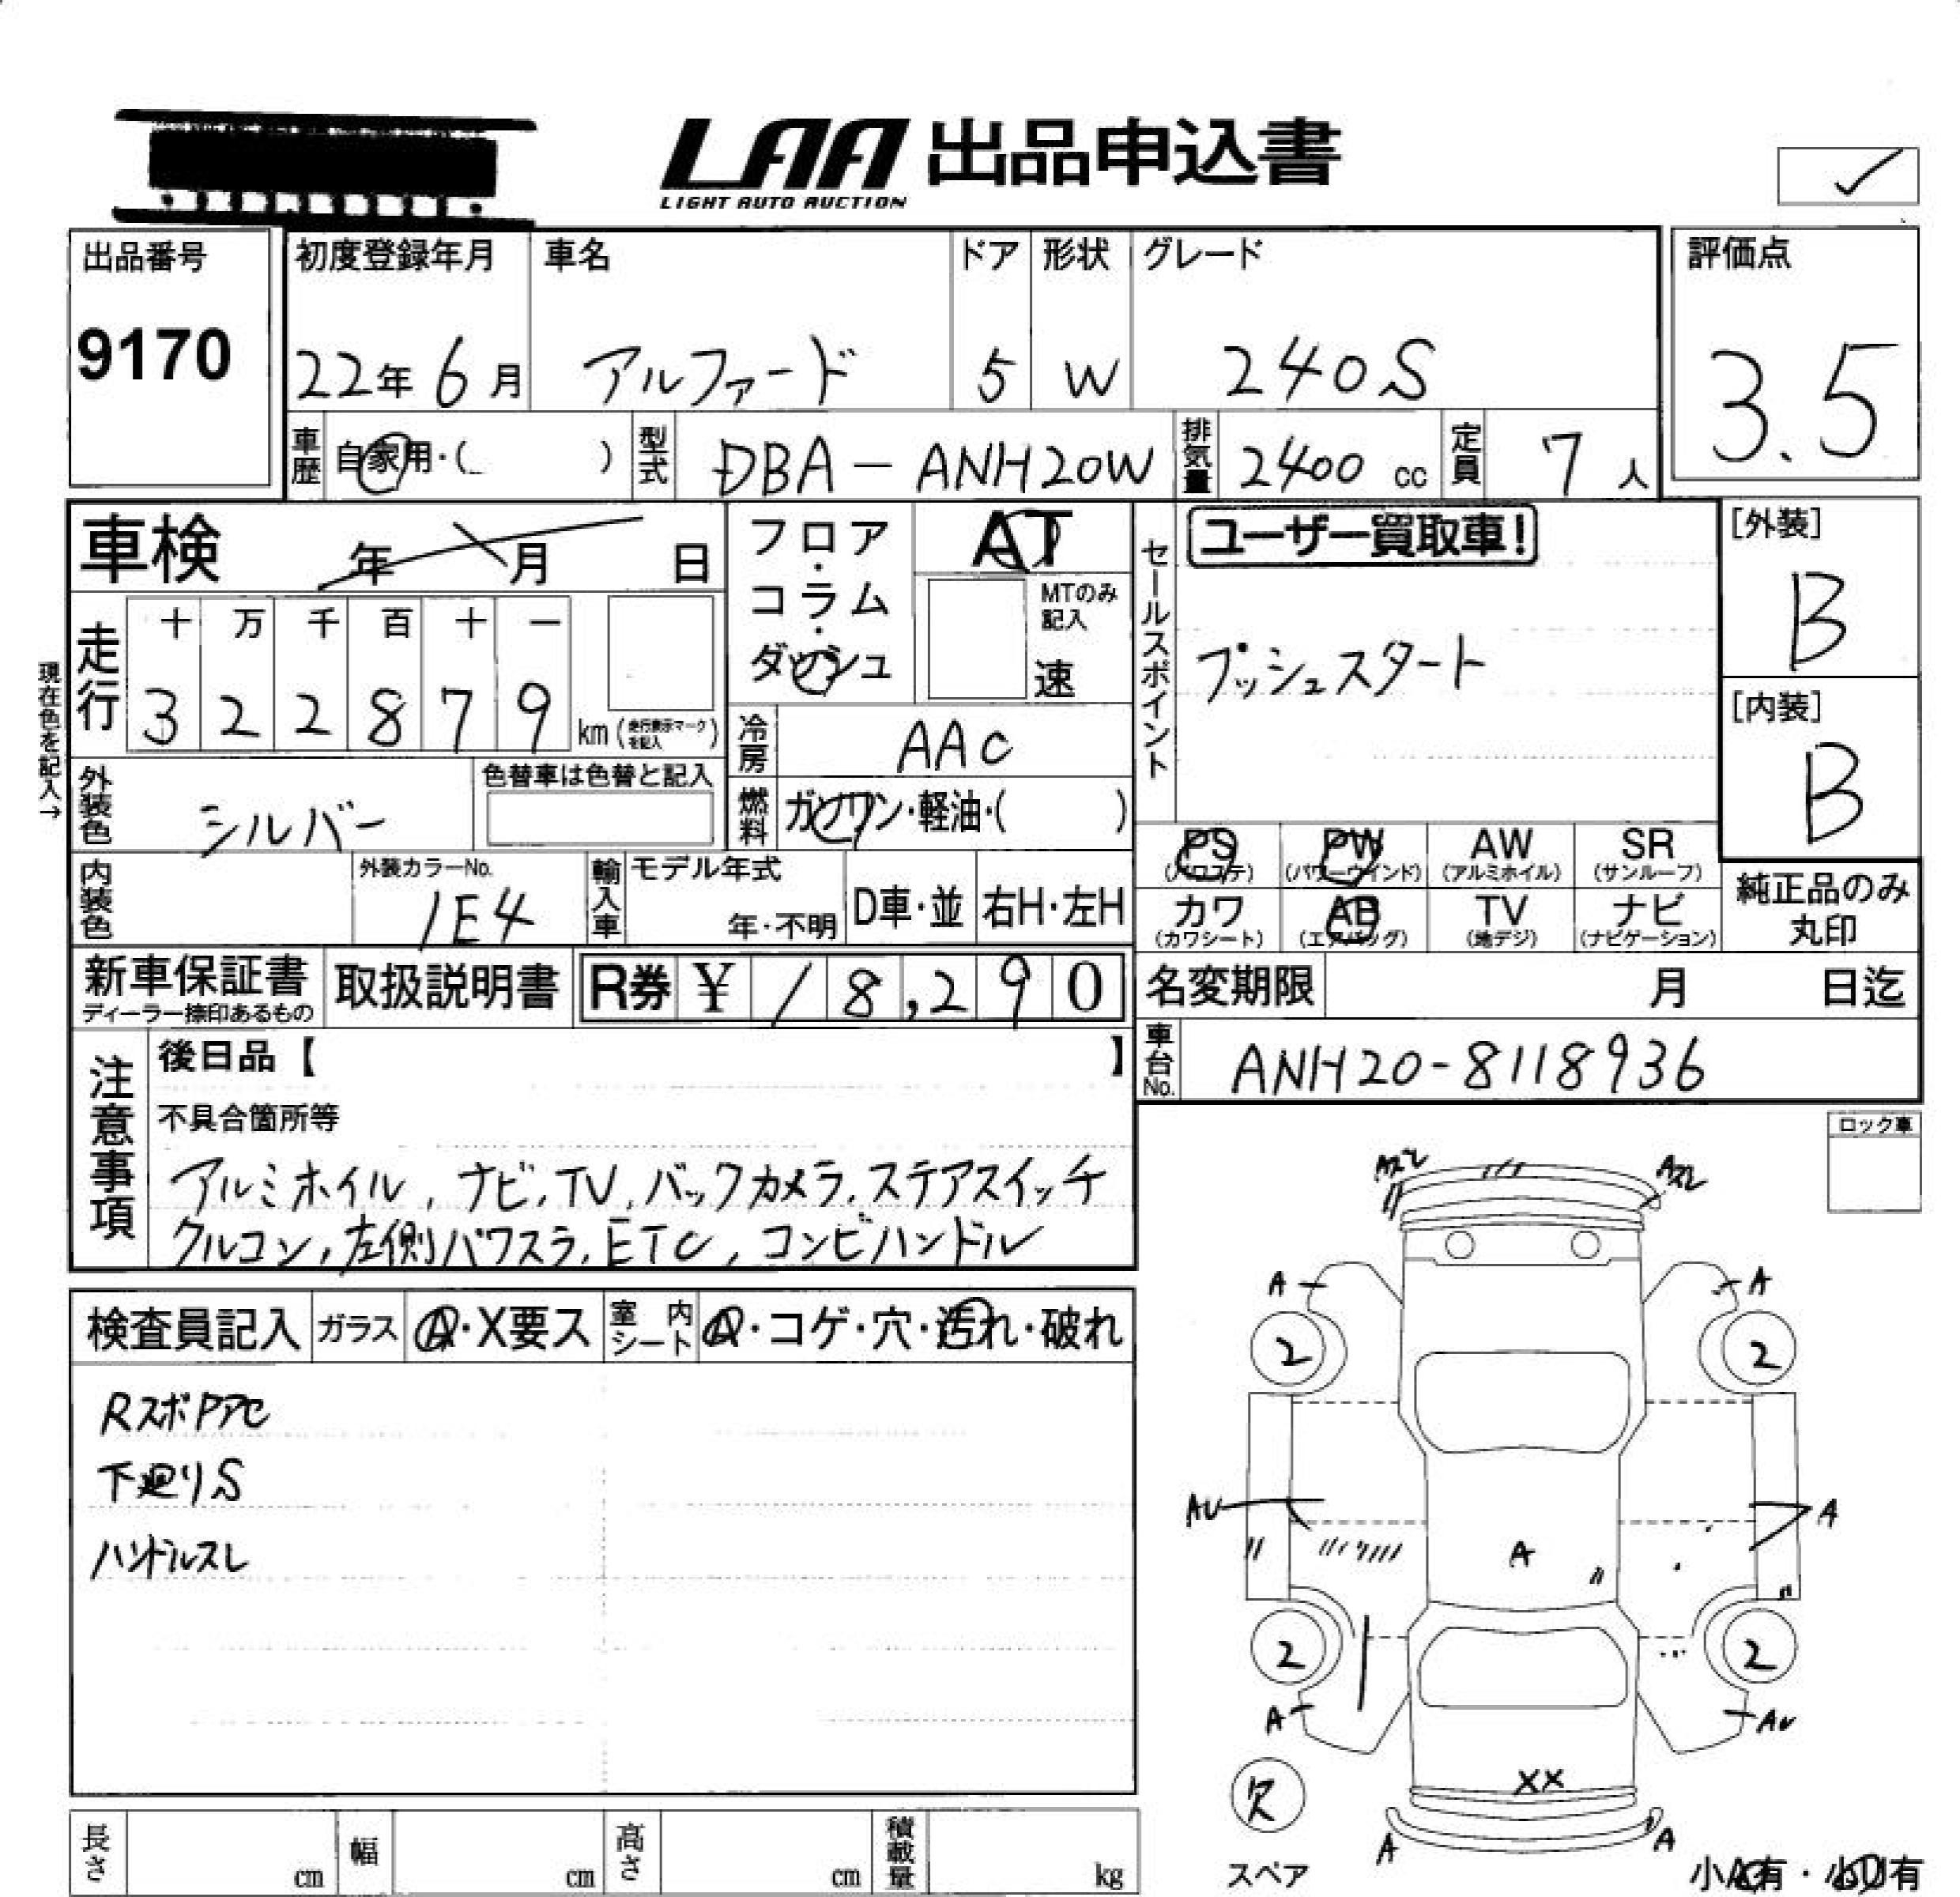 LAA 出品申込書
LIGHT AUTO AUCTION
出品番号
9170
初度登録年月
22年 6月
車名
アルファード
ドア
5
形状
W
グレード
240S
評価点
3.5
車歴
自家用・( )
型式
DBA-ANH20W
排気量
2400 cc
定員
7 人
車検 年 月 日
フロア・コラム・ダッシュ
AT
MTのみ記入
速
セールスポイント
ユーザー買取車!
プッシュスタート
[外装]
B
[内装]
B
現在色を記入→
走行
十 万 千 百 十 一
3 2 2 8 7 9 km (走行表示マークを記入)
冷房
AAC
外装色
シルバー
色替車は色替と記入
燃料
ガソリン・軽油・( )
PS (パワステ)
PW (パワーウインド)
AW (アルミホイル)
SR (サンルーフ)
カワ (カワシート)
AB (エアバッグ)
TV (地デジ)
ナビ (ナビゲーション)
純正品のみ
丸印
内装色
外装カラーNo.
1E4
輸入車
モデル年式
年・不明
D車・並
右H・左H
新車保証書
ディーラー捺印あるもの
取扱説明書
R券 ¥ 18,290
名変期限 月 日迄
車台No.
ANH20-8118936
注意事項
後日品【 】
不具合箇所等
アルミホイル, ナビ, TV, バックカメラ, ステアスイッチ
クルコン, 左側パワスラ, ETC, コンビハンドル
ロック車
検査員記入
ガラス
A・X要ス
室内シート
A・コゲ・穴・汚れ・破れ
RスポPアC
下廻りS
ハンドルスレ
A A
2 2
AU A
A
2 2
A AU
XX
欠
A A
スペア
小A有・小U有
長さ cm
幅 cm
高さ cm
積載量 kg